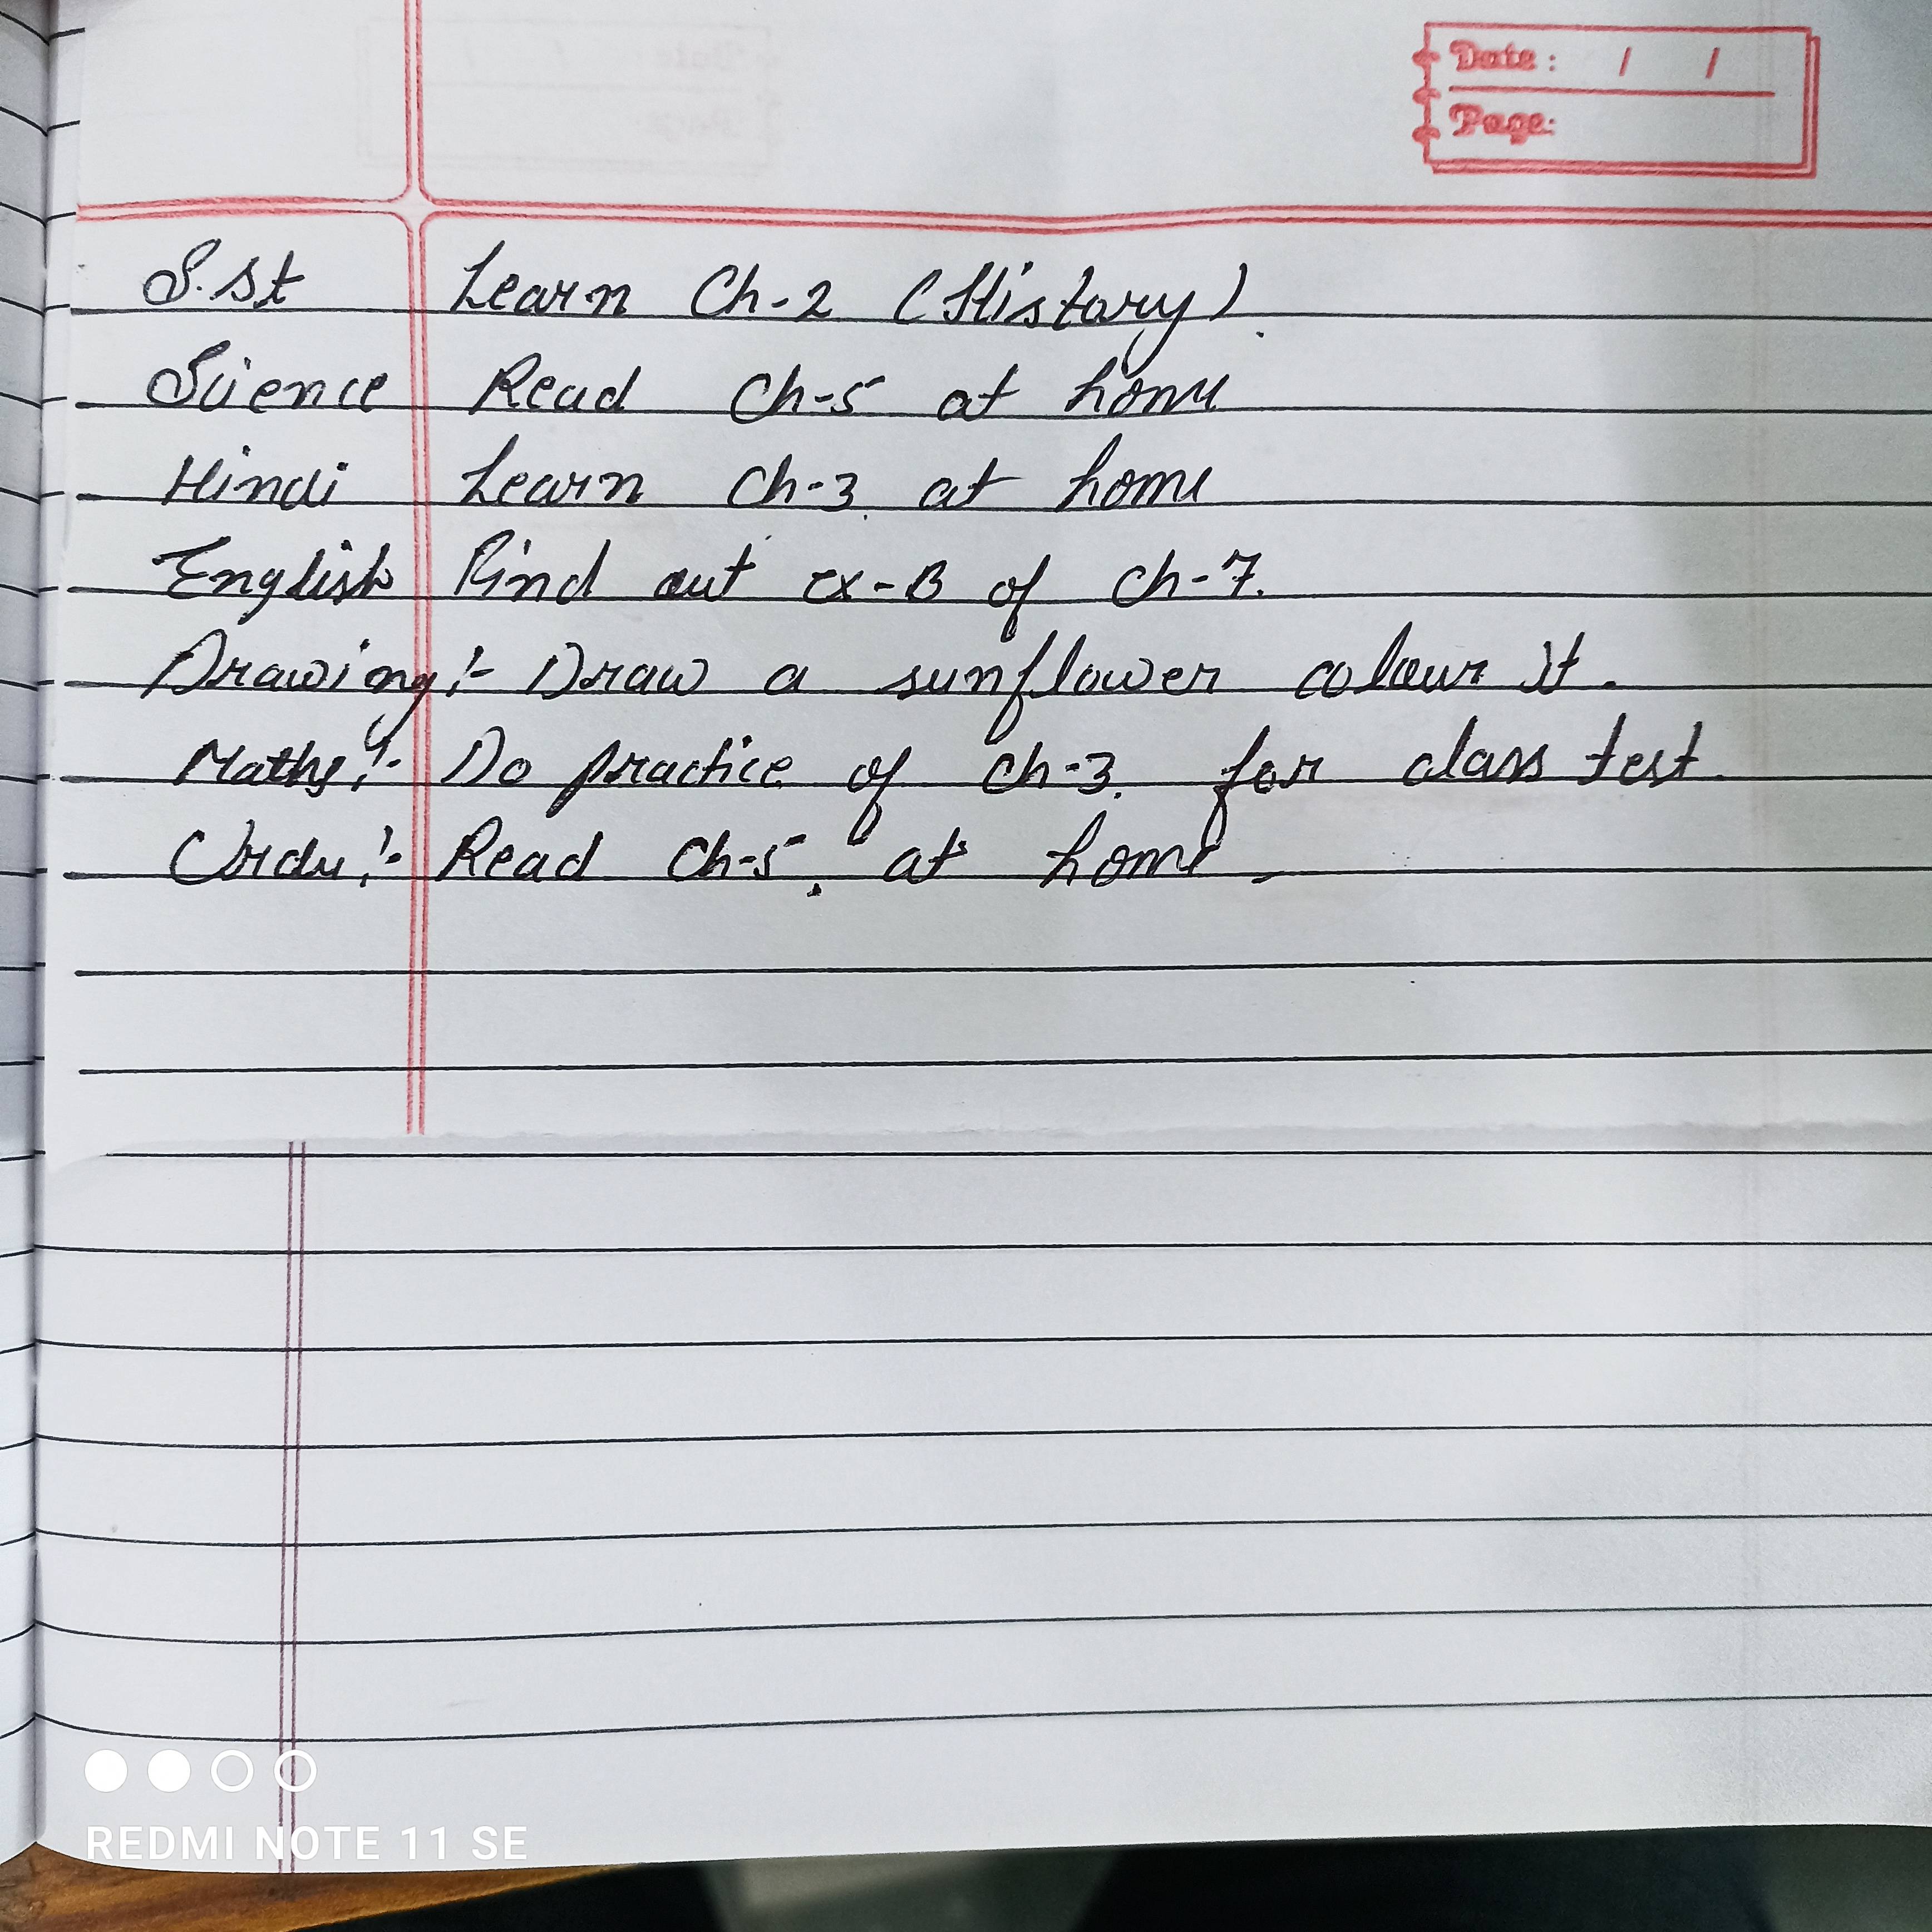 Date: / /
Page:
S.st Learn Ch-2 (History).
Science Read Ch-5 at home
Hindi Learn Ch-3. at home
English Find out ex-B of ch-7.
Drawing:- Draw a sunflower colour it.
Maths:- Do practice of ch-3. for class test.
Urdu:- Read Ch-5. at home.
REDMI NOTE 11 SE